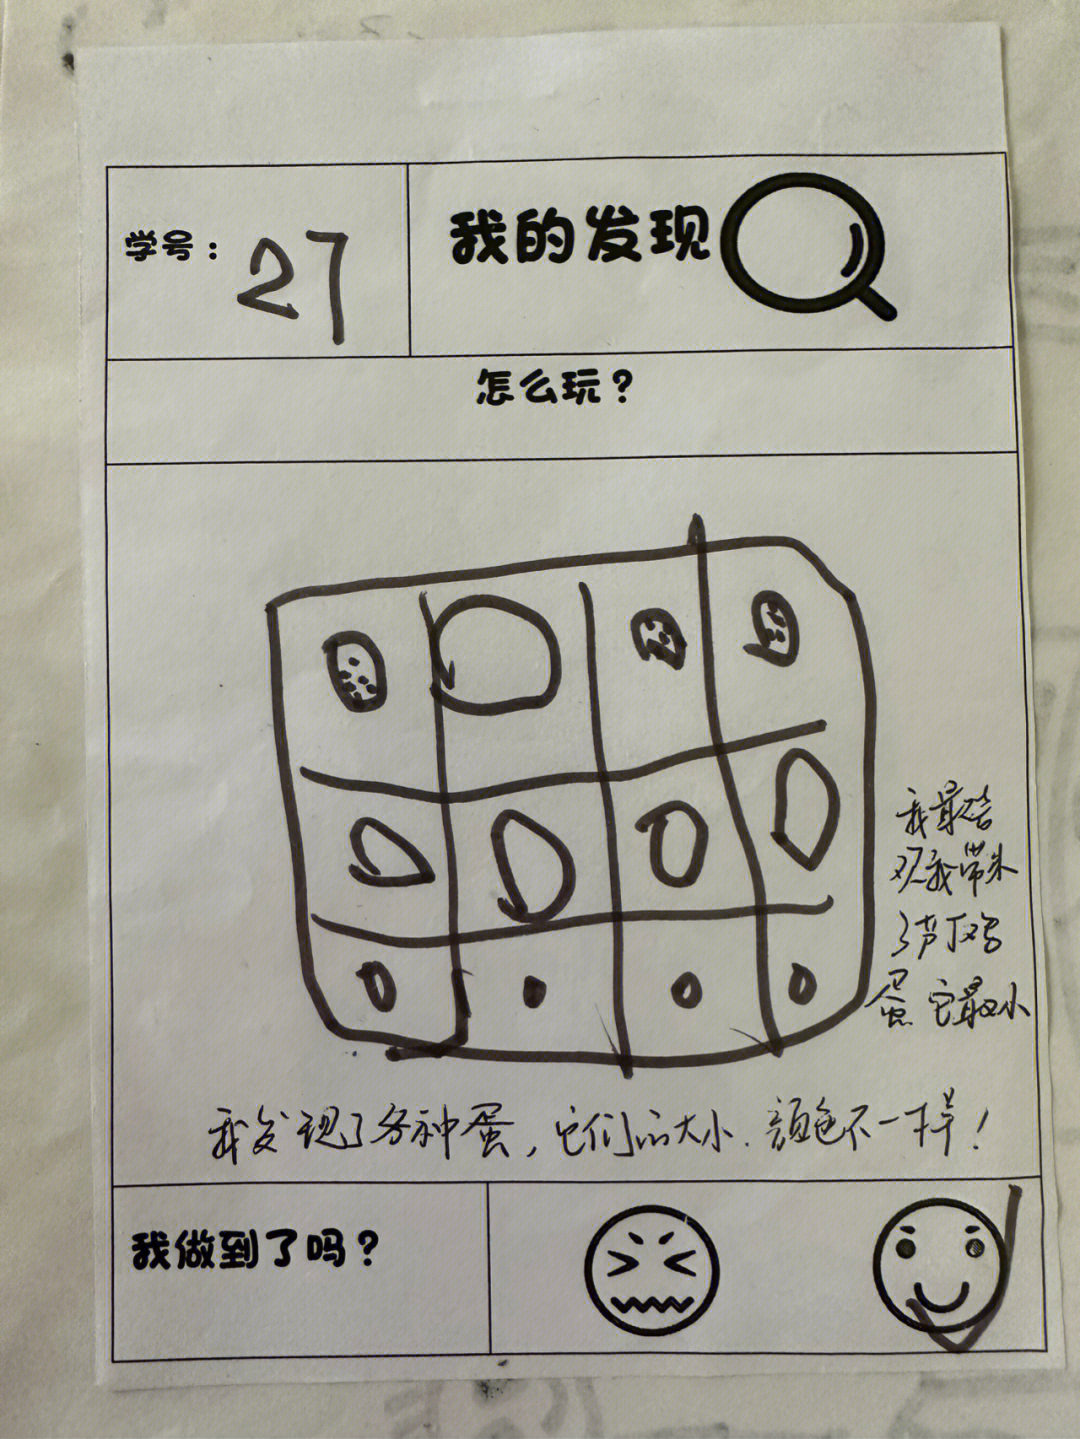 学号：27
我的发现
怎么玩？
我最喜
欢我带来
了芦丁鸡
蛋 它最小
我发现了各种蛋，它们的大小、颜色不一样！
我做到了吗？